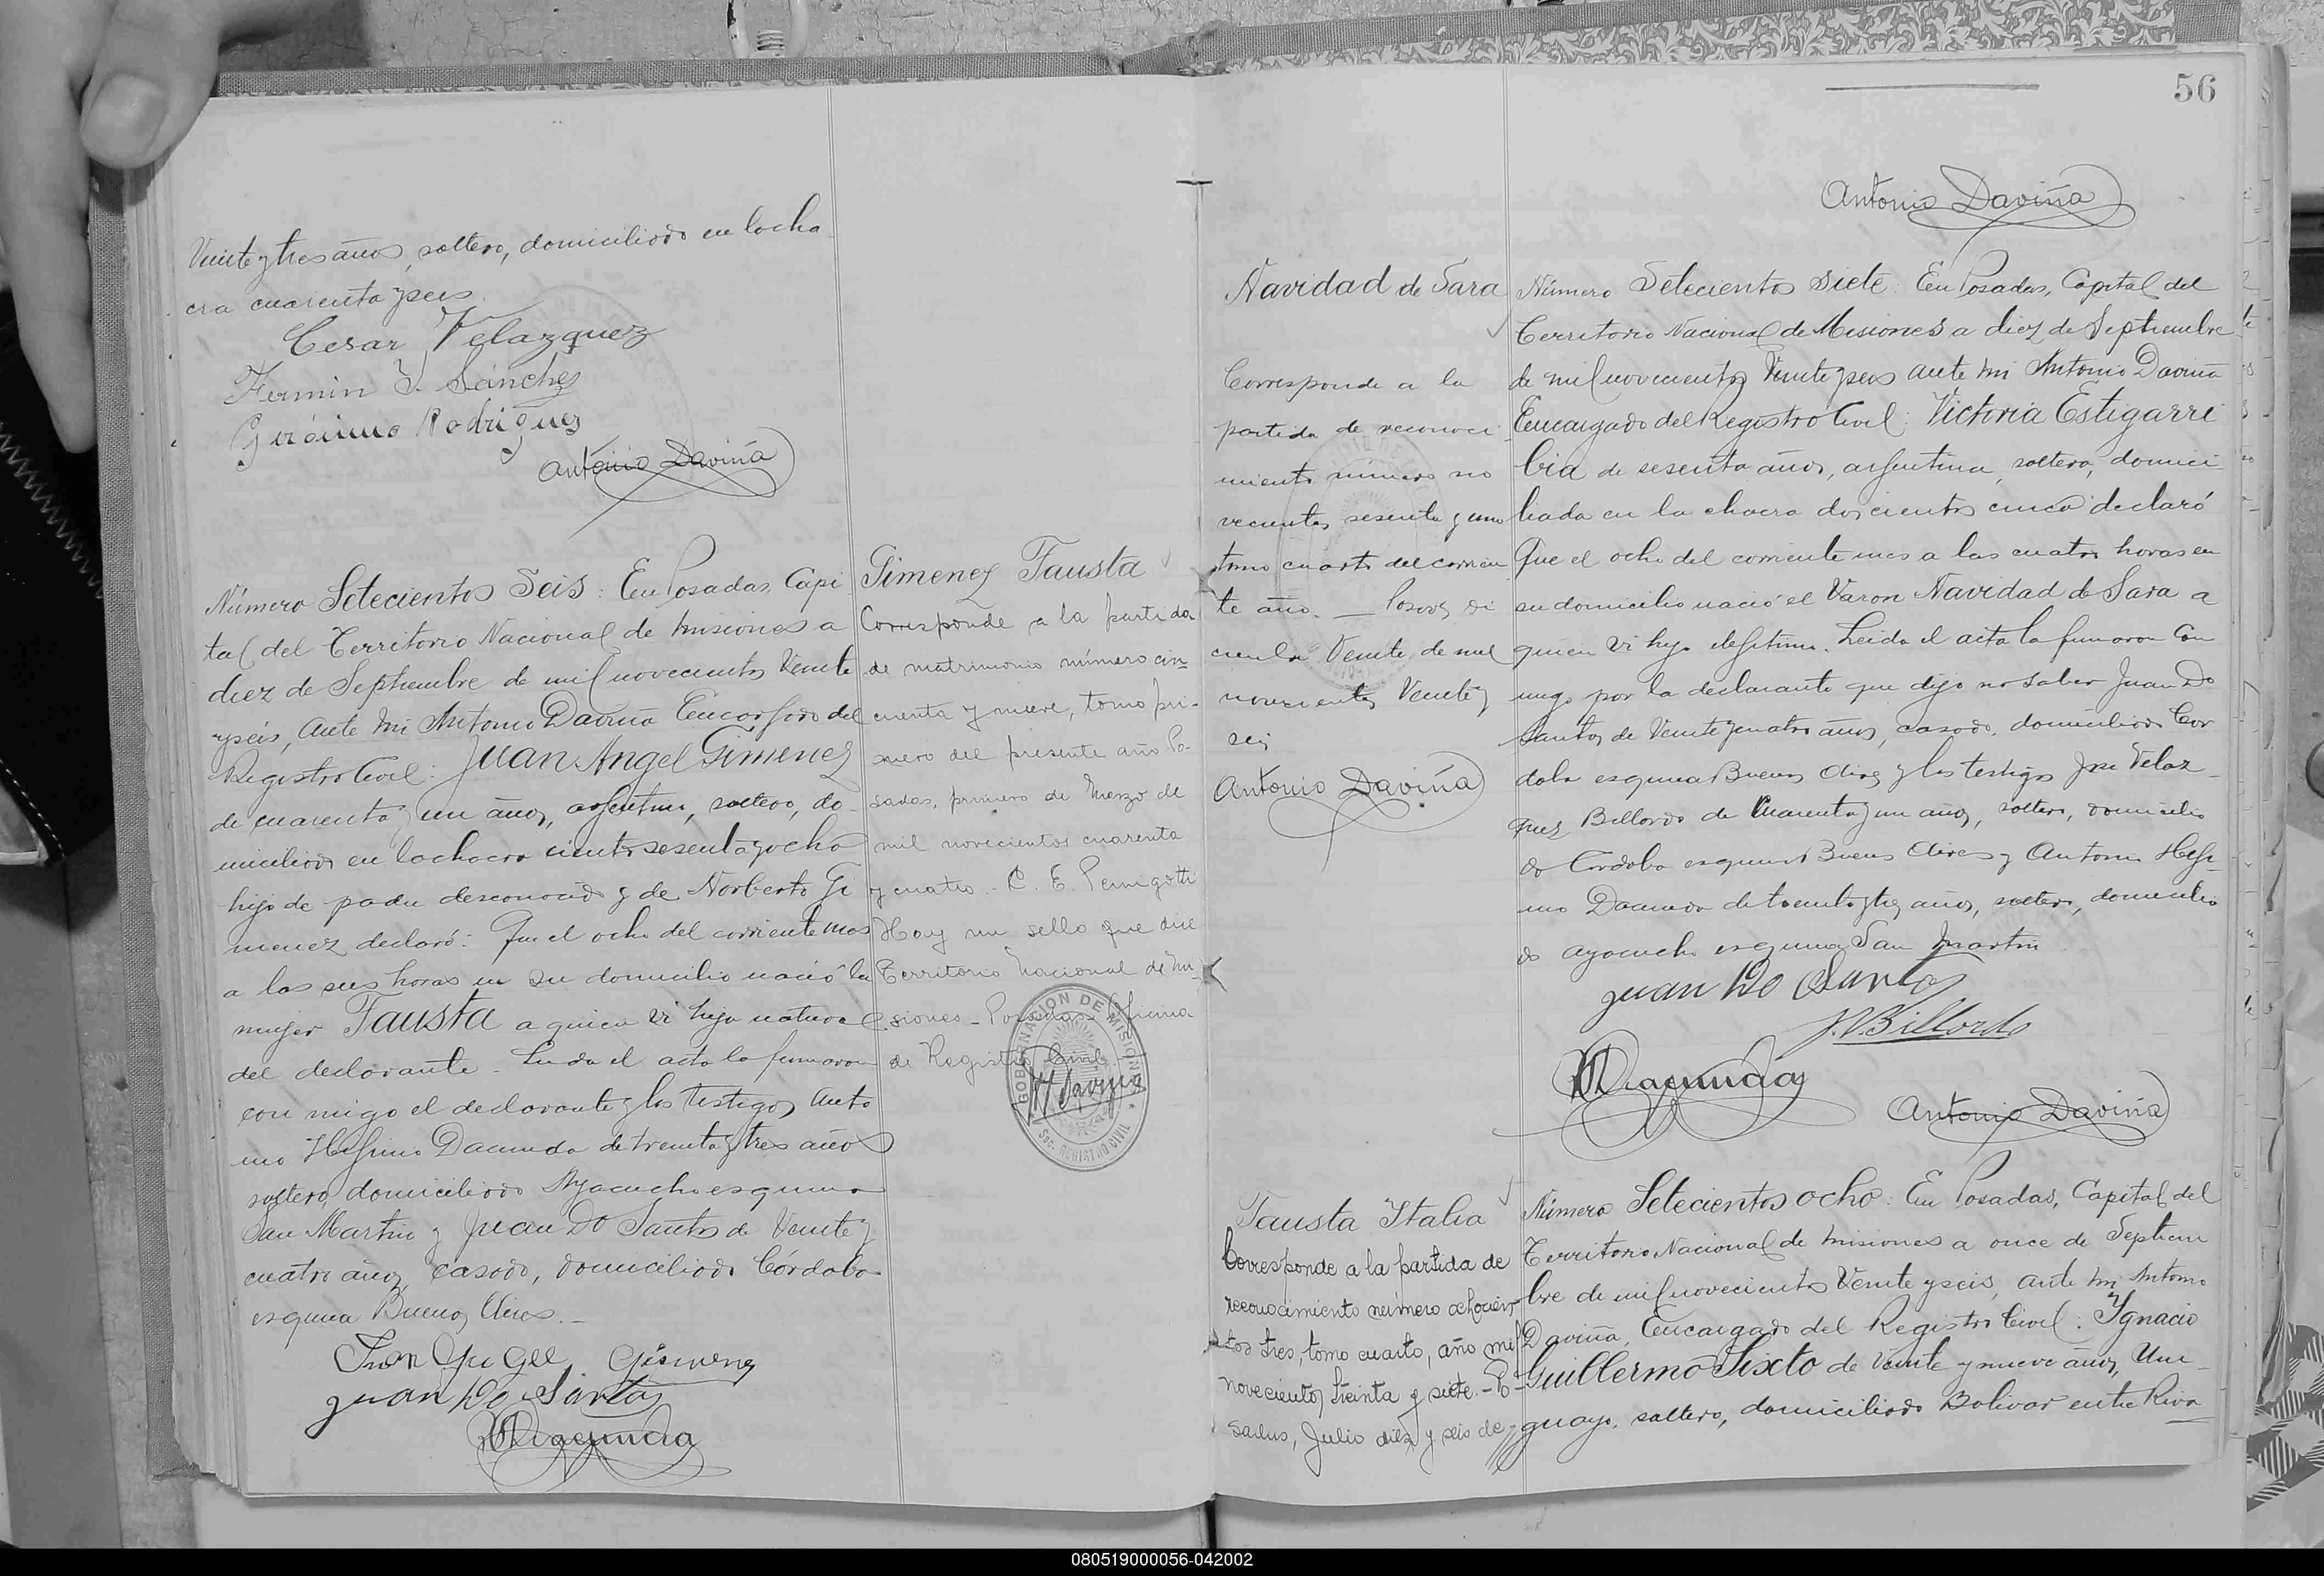 Veinte y tres años, soltero, domiciliado en la cha
cra cuarenta y seis.
Cesar Velazquez
Fermin Y. Sánchez
Gerónimo Rodriguez
Antonio Daviña
Número Setecientos Seis: En Posadas, Capi
tal del Territorio Nacional de Misiones a
diez de Septiembre de mil novecientos Veinte
yseis, Ante mi Antonio Daviña Encargado del
Registro Civil: Juan Angel Gimenez
de cuarenta y un años, argentino, soltero, do-
miciliado en la chacra ciento sesenta y ocho
hijo de padre desconocido y de Norberta Gi
menez declaró: Que el ocho del corriente mes
a las seis horas en su domicilio nació la
mujer Fausta a quien vi hija natural
del declarante. Leida el acta la firmaron
con migo el declarante y los testigos Anto
nio Higinio Dacunda de treinta y tres años
soltero, domiciliado Ayacucho esquina
San Martin y Juan Do Santos de Veinte y
cuatro años, casado, domiciliado Córdoba
esquina Buenos Aires.-
Juan Angel Gimenez
Juan Do Santos
Gimenez Fausta
Corresponde a la partida
de matrimonio número cin-
cuenta y nueve, tomo pri-
mero del presente año Po-
sadas, primero de Marzo de
mil novecientos cuarenta
y cuatro.- C. E. Pernigotti
Hay un sello que dice
Territorio Nacional de Mi-
siones - Posadas - Oficina
de Registro Civil
GOBERNACION DE MISIONES
Sec. REGISTRO CIVIL
56
Antonio Daviña
Navidad de Sara
Corresponde a la
partida de reconoci
miento número no
vecientos sesenta y uno
tomo cuarto del corrien
te año. — Posadas, di
ciembre Veinte de mil
novecientos Veinte y
seis
Antonio Daviña
Número Setecientos siete: En Posadas, Capital del
Territorio Nacional de Misiones a diez de Septiembre
de mil novecientos Veinte yseis ante mi Antonio Daviña
Encargado del Registro Civil: Victoria Estigarri
bia de sesenta años, argentina, soltera, domici
liada en la chacra doscientos cinco declaró
Que el ocho del corriente mes a las cuatro horas en
su domicilio nació el Varon Navidad de Sara a
quien vi hijo ilegitimo. Leida el acta la firmaron con
migo por la declarante que dijo no saber Juan Do
Santos de Veinte y cuatro años, casado, domiciliado Cor
doba esquina Buenos Aires y los testigos José Velaz-
quez Billordo de Cuarenta y un años, soltero, domicilia
do Córdoba esquina Buenos Aires y Antonio Higi-
nio Dacunda de treinta y tres años, soltero, domicilia
do ayacucho esquina San Martin
Juan Do Santos
J. V. Billordo
Antonio Daviña
Fausta Italia
Corresponde a la partida de
reconocimiento número ochocien-
tos tres, tomo cuarto, año mil
novecientos treinta y siete.- Po-
sadas, Julio diez y seis de
Número Setecientos ocho: En Posadas, Capital del
Territorio Nacional de Misiones a once de Septiem
bre de mil novecientos Veinte yseis, ante mi Antonio
Daviña, Encargado del Registro Civil: Ygnacio
Guillermo Sixto de Veinte y nueve años, Uru-
guayo, soltero, domiciliado Bolivar entre Riva
080519000056-042002